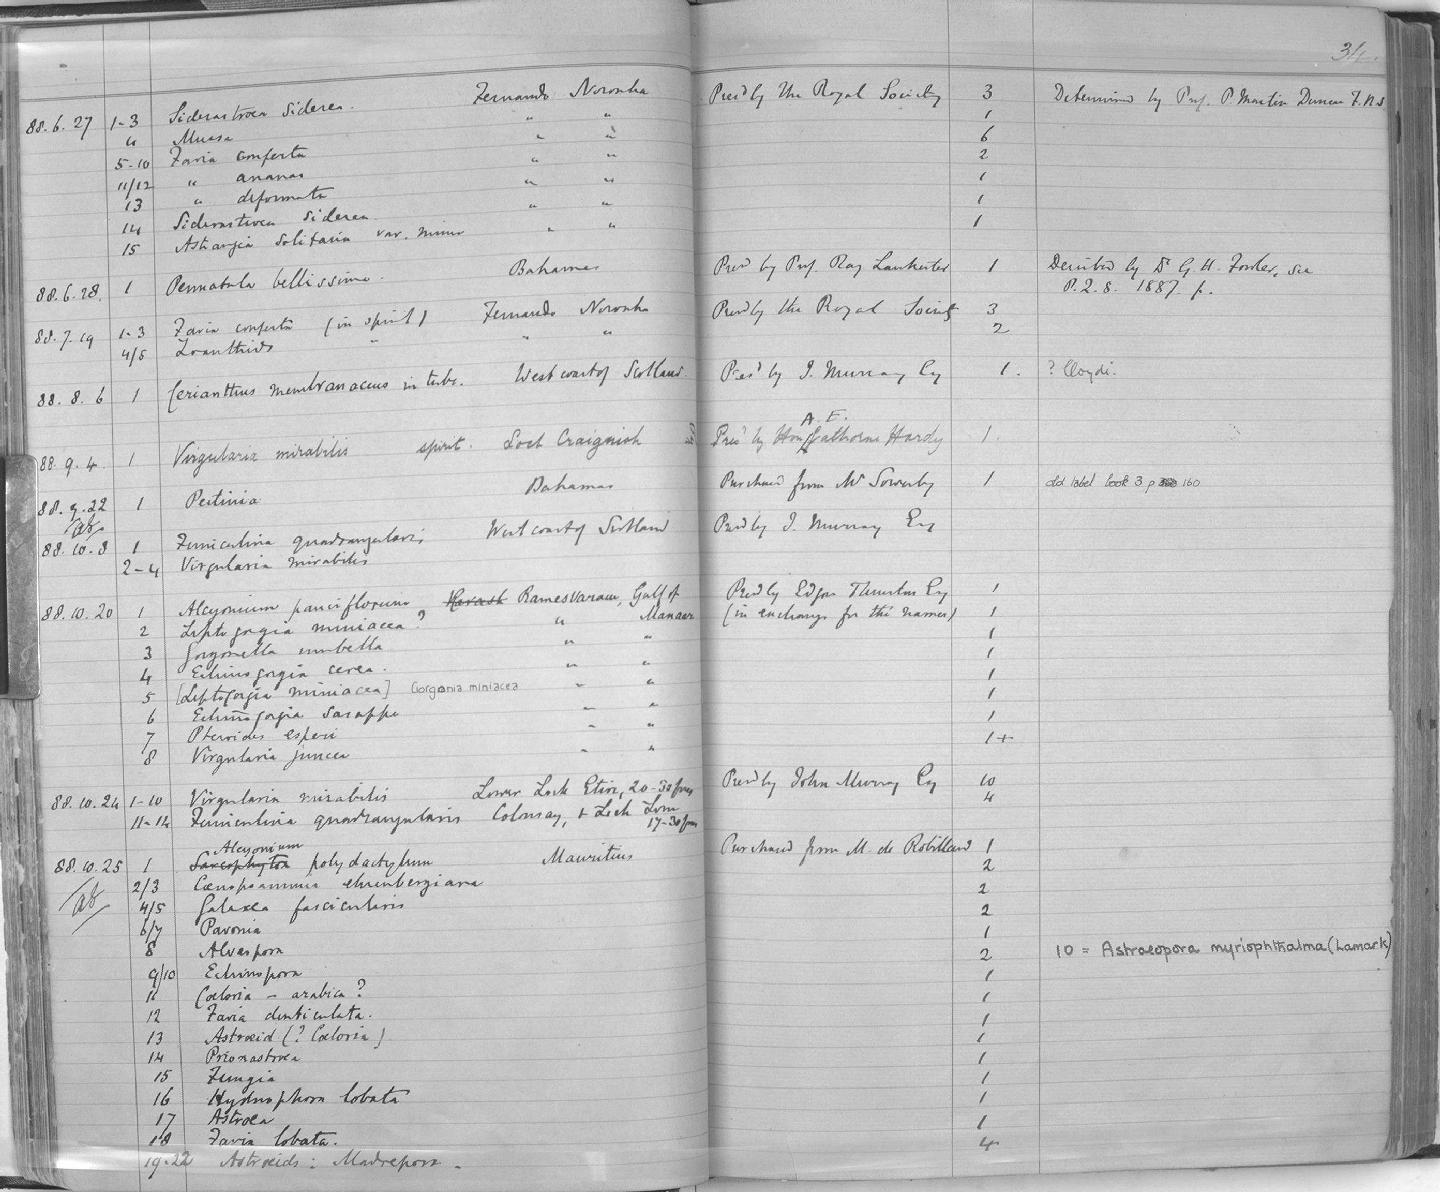 34.
88.6.27 1-3 Siderastroea Siderea. Fernando Noronha Pres'd by the Royal Society 3 Determined by Prof. P. Martin Duncan F.R.S
4 Mussa " " 1
5-10 Favia conferta " " 6
11/12 " ananas " " 2
13 " deformata " " 1
14 Siderastroea Siderea " " 1
15 Astrangia Solitaria var. minor " " 1
88.6.28. 1 Pennatula bellissima. Bahamas Pres'd by Prof. Ray Lankester 1 Described by Dr G. H. Fowler, see
P.Z.S. 1887. p.
88.7.19 1-3 Favia conferta (in spirit) Fernando Noronha Pres'd by the Royal Society 3
4/5 Zoanthids " " " 2
88.8.6 1 Cerianthus membranaceus in tube. West coast of Scotland. Pres'd by J. Murray Esq 1. ? lloydi.
88.9.4. 1 Virgularia mirabilis spirit. Loch Craignish Pres'd by Hon A. E. Gathorne Hardy 1.
88.9.22 1 Pectinia Bahamas Purchased from Mr Sowerby 1 old label book 3 p 160
88.10.8 1 Funiculina quadrangularis West coast of Scotland Pres'd by J. Murray Esq
2-4 Virgularia mirabilis
88.10.20 1 Alcyonium pauciflorum Ramesvaram, Gulf of Manaar Pres'd by Edgar Thurston Esq 1
2 Leptogorgia miniacea? " (in exchange for the names) 1
3 Gorgonella umbella " " 1
4 Echinogorgia cerea. " " 1
5 [Leptogorgia miniacea] Gorgonia miniacea " " 1
6 Echinogorgia Sasappo " " 1
7 Pteroides esperi " " 1
8 Virgularia juncea " " 1+
88.10.24 1-10 Virgularia mirabilis Lower Loch Etive, 20-30 fms Pres'd by John Murray Esq 10
11-14 Funiculina quadrangularis Colonsay, & Loch Linn 17-30 fms 4
88.10.25 1 Sarcophyton Alcyonium polydactylum Mauritius Purchased from M. de Robillard 1
2/3 Coenopsammia ehrenbergiana 2
4/5 Galaxea fascicularis 2
6/7 Pavonia 2
8 Alveopora 1
9/10 Echinopora 2 10 = Astraeopora myriophthalma (Lamark)
11 Coeloria - arabica? 1
12 Favia denticulata. 1
13 Astroeid (? Coeloria) 1
14 Prionastroea 1
15 Fungia 1
16 Hydnophora lobata 1
17 Astroea 1
18 Favia lobata. 1
19-22 Astroeids: Madrepora. 4